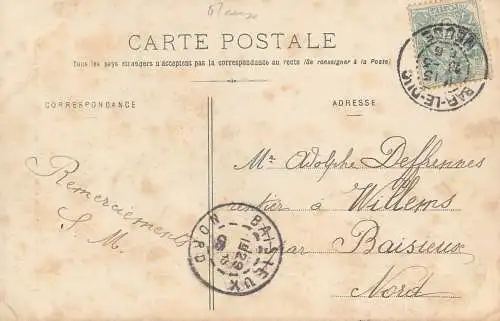 Meuse
CARTE POSTALE
Tous les pays étrangers n'acceptent pas la correspondance au recto (Se renseigner à la Poste)
CORRESPONDANCE
ADRESSE
BAR-LE-DUC
MEUSE
Mr Adolphe Deffrennes
rentier à Willems
par Baisieux
Nord
Remerciements
S. M.
BAISIEUX
NORD